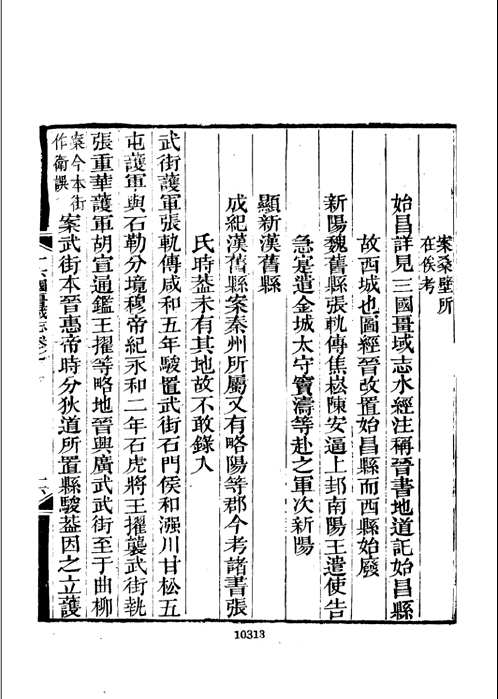 案桑壁所
在俟考
始昌詳見三國畺域志水經注稱晉書地道記始昌縣
故西城也圖經晉改置始昌縣而西縣始廢
新陽魏舊縣張軌傳焦崧陳安逼上邽南陽王遣使告
急寔遣金城太守竇濤等赴之軍次新陽
顯新漢舊縣
成紀漢舊縣案秦州所屬又有略陽等郡今考諸書張
氏時葢未有其地故不敢錄入
武街護軍張軌傳咸和五年駿置武街石門侯和漒川甘松五
屯護軍與石勒分境穆帝紀永和二年石虎將王擢襲武街執
張重華護軍胡宣通鑑王擢等略地晉興廣武武街至于曲柳
案今本街
作衛誤
案武街本晉惠帝時分狄道所置縣駿葢因之立護
十六國畺域志卷七
十六
10313